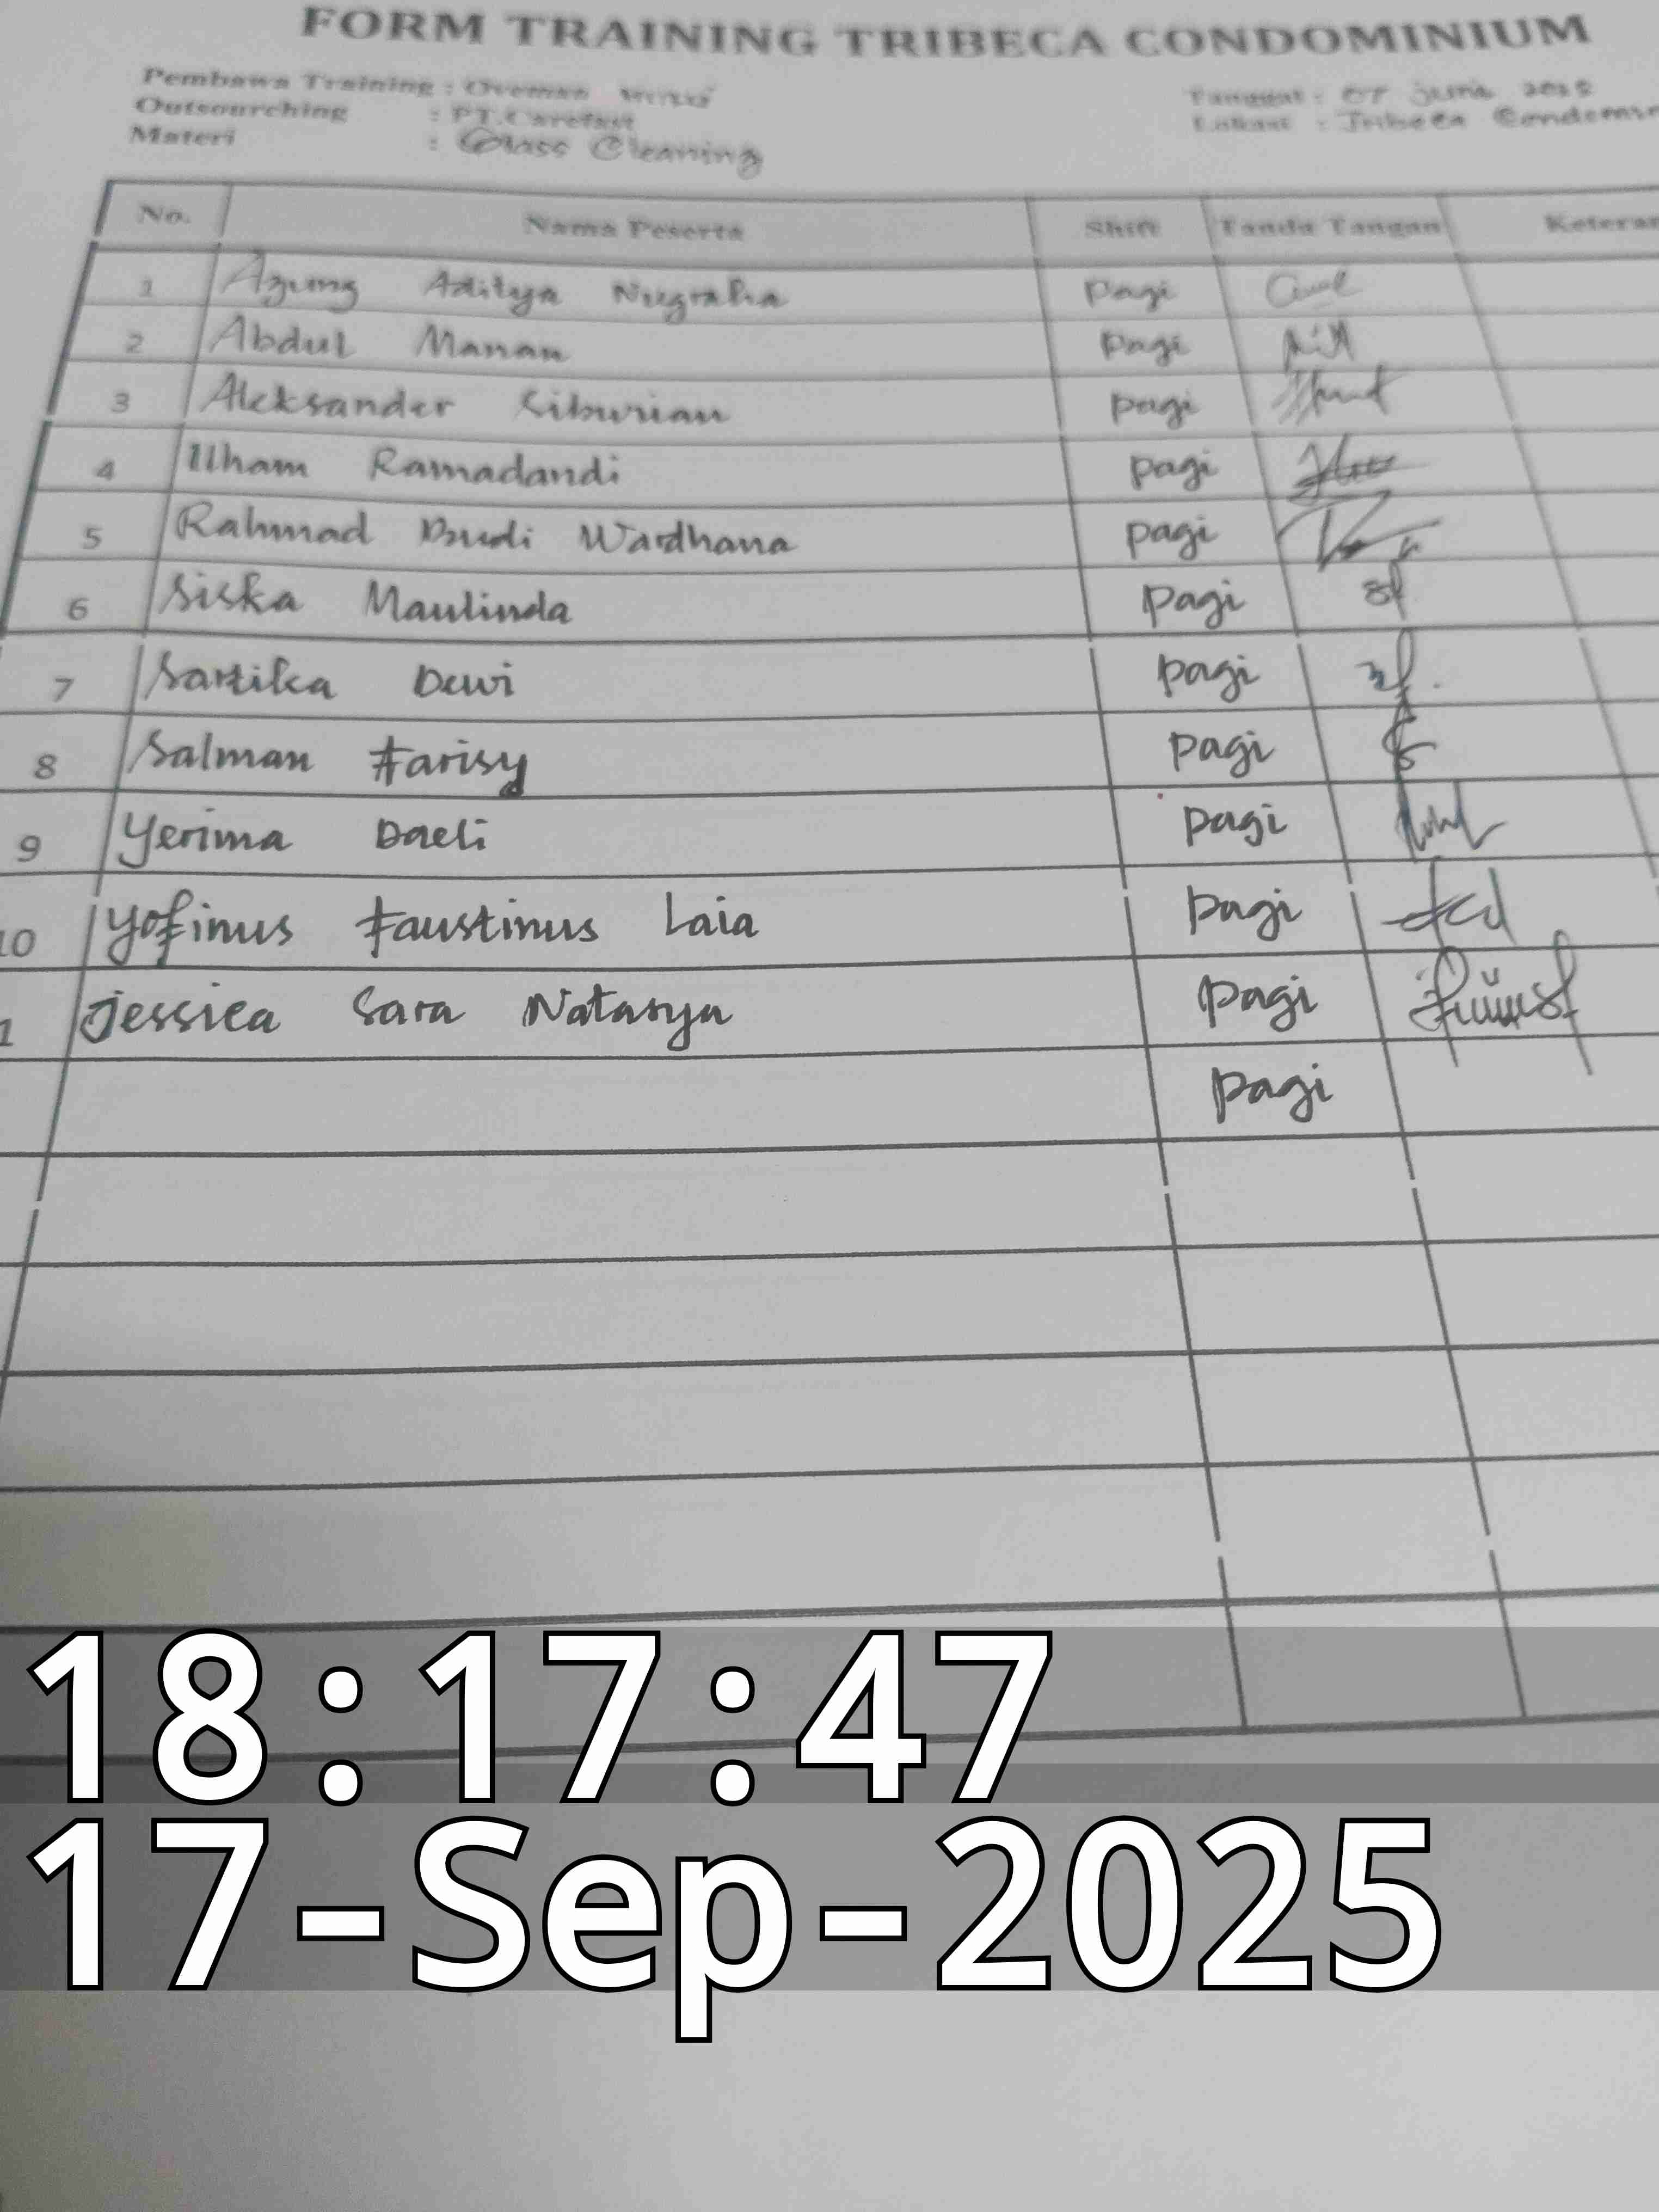 FORM TRAINING TRIBECA CONDOMINIUM
Pembawa Training :
Outsourching : PT.Carefast
Materi : Glass Cleaning
Tanggal : 07 Juni
Lokasi : Tribeca
No. Nama Peserta Shift Tanda Tangan
1 Agung Aditya Nugraha pagi
2 Abdul Manan pagi
3 Aleksander Siburian pagi
4 Ilham Ramadandi pagi
5 Rahmad Budi Wardhana pagi
6 Siska Maulinda pagi
7 Sartika Dewi pagi
8 Salman Farisy pagi
9 Yerima Daeli pagi
10 Yofinus Faustinus Laia pagi
1 Jessica Sara Natasya pagi
pagi
18:17:47
17-Sep-2025